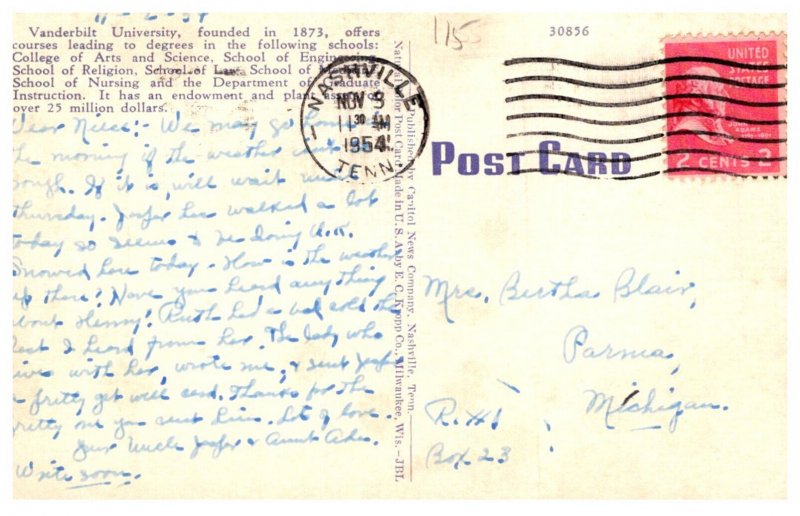 11-2-54
Vanderbilt University, founded in 1873, offers
courses leading to degrees in the following schools:
College of Arts and Science, School of Engineering,
School of Religion, School of Law, School of
School of Nursing and the Department of Graduate
Instruction. It has an endowment and plant assets of
over 25 million dollars.
Dear Niece: We may go home
the morning if the weather
rough. If it is, will wait
Thursday. has walked a lot
today so seems to be doing O.K.
Snowed here today. How is the weather
up there? Have you heard anything
about Henny? Ruth had a bad cold the
last I heard from her. The lady who
lives with her, wrote me, & sent
a pretty get well card. Thanks for the
pretty one you sent him. Lots of love.
Your Uncle & Aunt
Write soon.
National Color Post Card Made in U. S. A. by E. C. Kropp Co., Milwaukee, Wis.—JBL
Published by Capitol News Company, Nashville, Tenn.
115
30856
NASHVILLE
NOV 3
11 30 AM
1954
TENN.
UNITED
STATES
POSTAGE
JOHN
ADAMS
2 CENTS 2
POST CARD
Mrs. Bertha Blair,
Parma,
Michigan.
R.#1
Box 23